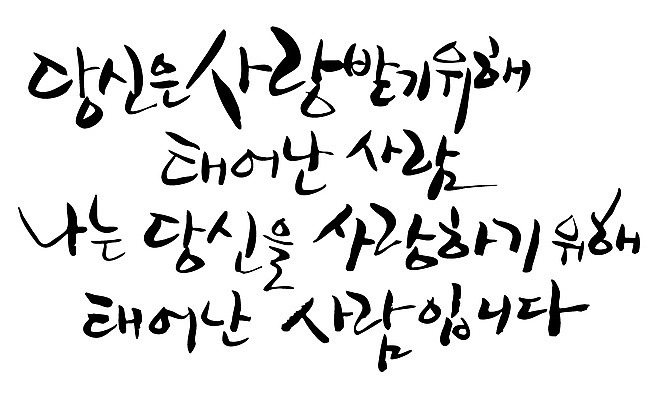 당신은 사랑받기위해
태어난 사람
나는 당신을 사랑하기 위해
태어난 사람입니다